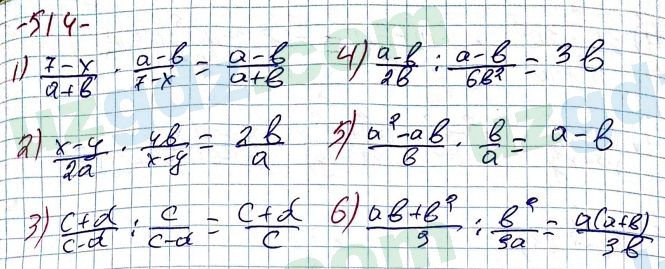 -514-
1) \frac{7-x}{a+b} \cdot \frac{a-b}{7-x} = \frac{a-b}{a+b}
4) \frac{a-b}{2b} : \frac{a-b}{6b^2} = 3b
2) \frac{x-y}{2a} \cdot \frac{4b}{x-y} = \frac{2b}{a}
5) \frac{a^2-ab}{b} \cdot \frac{b}{a} = a-b
3) \frac{c+d}{c-d} : \frac{c}{c-d} = \frac{c+d}{c}
6) \frac{ab+b^2}{9} : \frac{b^2}{3a} = \frac{a(a+b)}{3b}